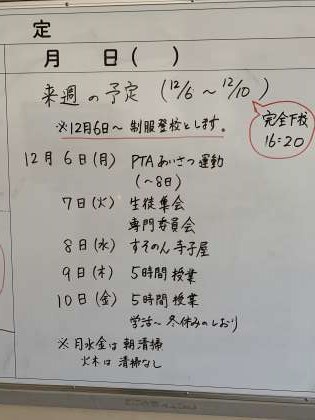 定
月 日( )
来週の予定 (12/6~12/10)
完全下校
16:20
※12月6日~ 制服登校とします。
12月 6日(月) PTAあいさつ運動
(~8日)
7日(火) 生徒集会
専門委員会
8日(水) すそのん寺子屋
9日(木) 5時間授業
10日(金) 5時間授業
学活~冬休みのしおり
※ 月水金は朝清掃
火木は清掃なし